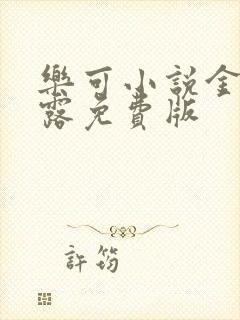 樂可小說金
露免費版
許筠